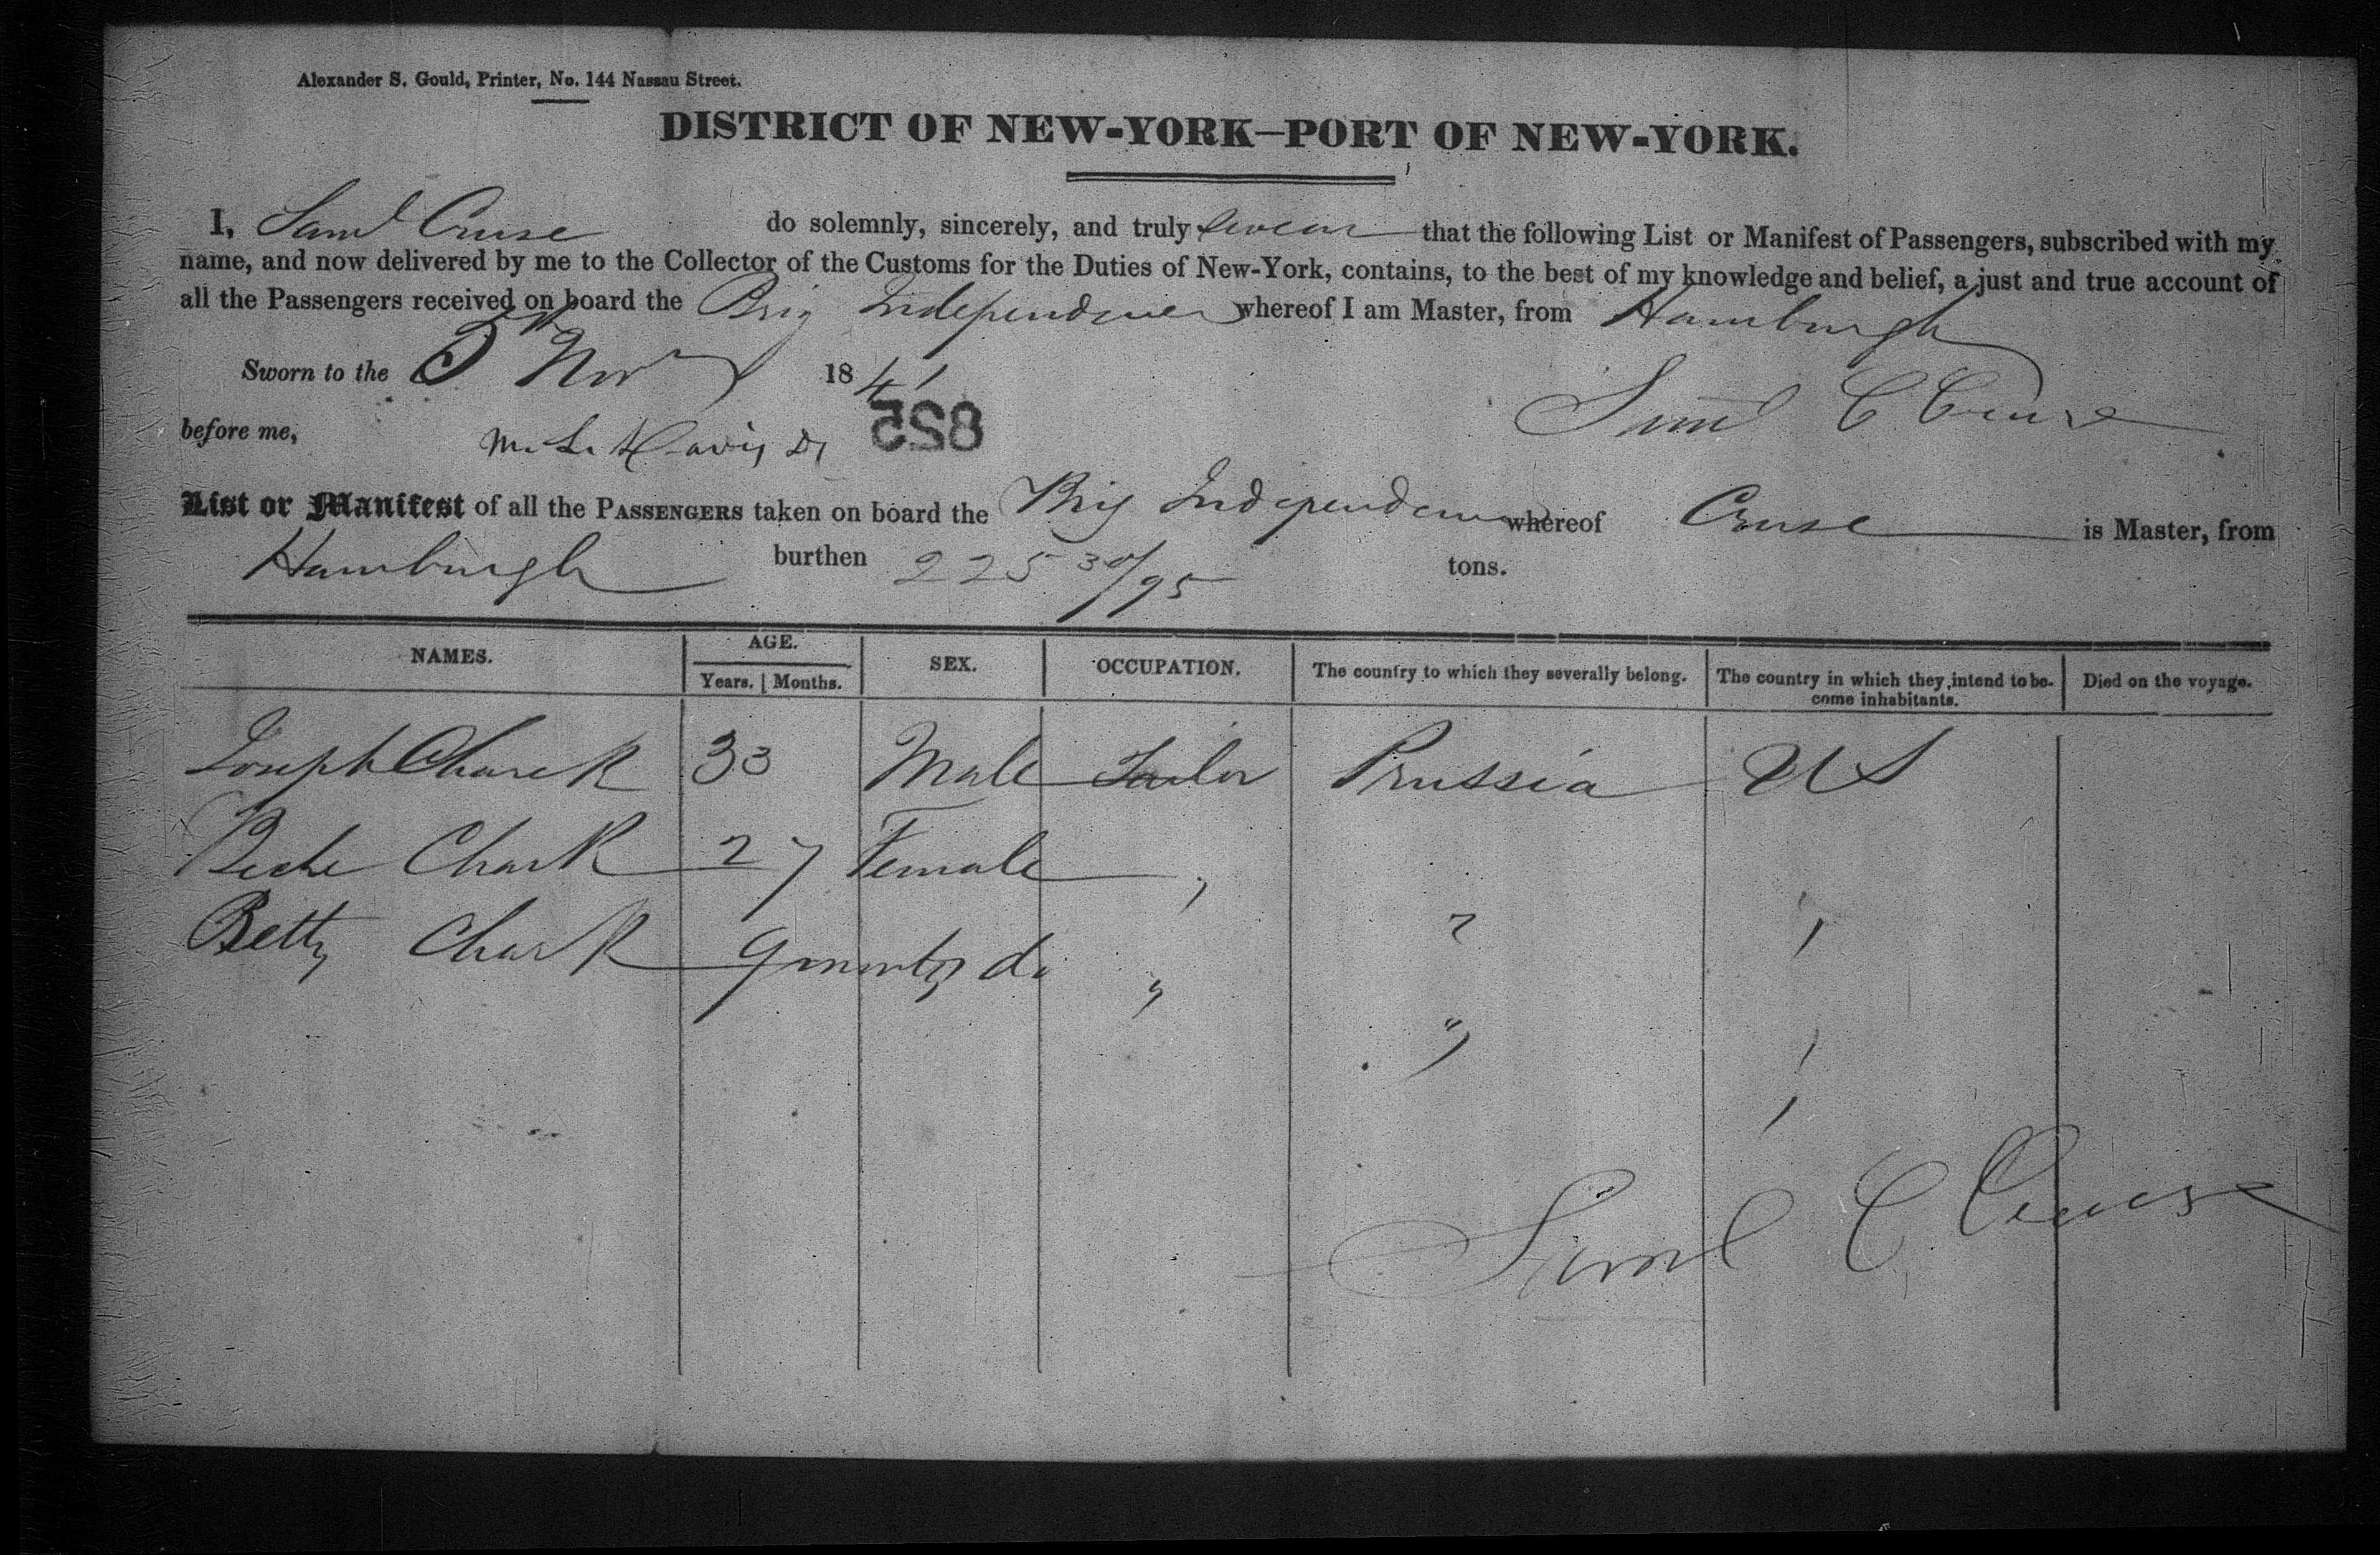 Alexander S. Gould, Printer, No. 144 Nassau Street.
DISTRICT OF NEW-YORK—PORT OF NEW-YORK.
I, Saml Cruse do solemnly, sincerely, and truly swear that the following List or Manifest of Passengers, subscribed with my
name, and now delivered by me to the Collector of the Customs for the Duties of New-York, contains, to the best of my knowledge and belief, a just and true account of
all the Passengers received on board the Brig Independence whereof I am Master, from Hamburgh
Sworn to the 5th Nov 1841
Saml C Cruse
before me, M. L. Davis
825
List or Manifest of all the PASSENGERS taken on board the Brig Independence whereof Cruse is Master, from
Hamburgh burthen 225 30/95 tons.
NAMES. AGE. Years. Months. SEX. OCCUPATION. The country to which they severally belong. The country in which they intend to be-come inhabitants. Died on the voyage.
Joseph 33 Male Tailor Prussia US
Chark 27 Female "
Betty Chark 9 months do "
Saml C Cruse